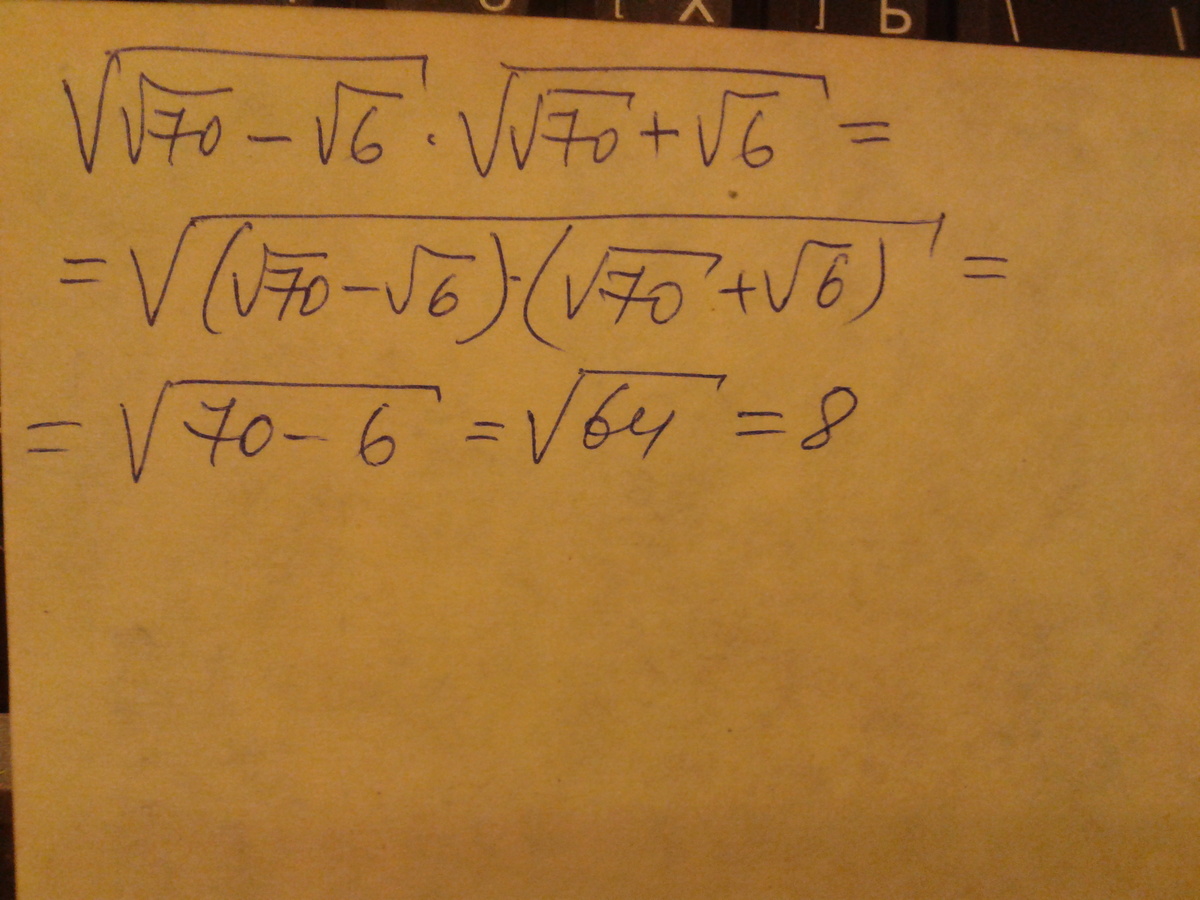 [ Х ] Ъ \
√(√70 − √6) · √(√70 + √6) =
= √((√70 − √6)·(√70 + √6)) =
= √(70 − 6) = √64 = 8